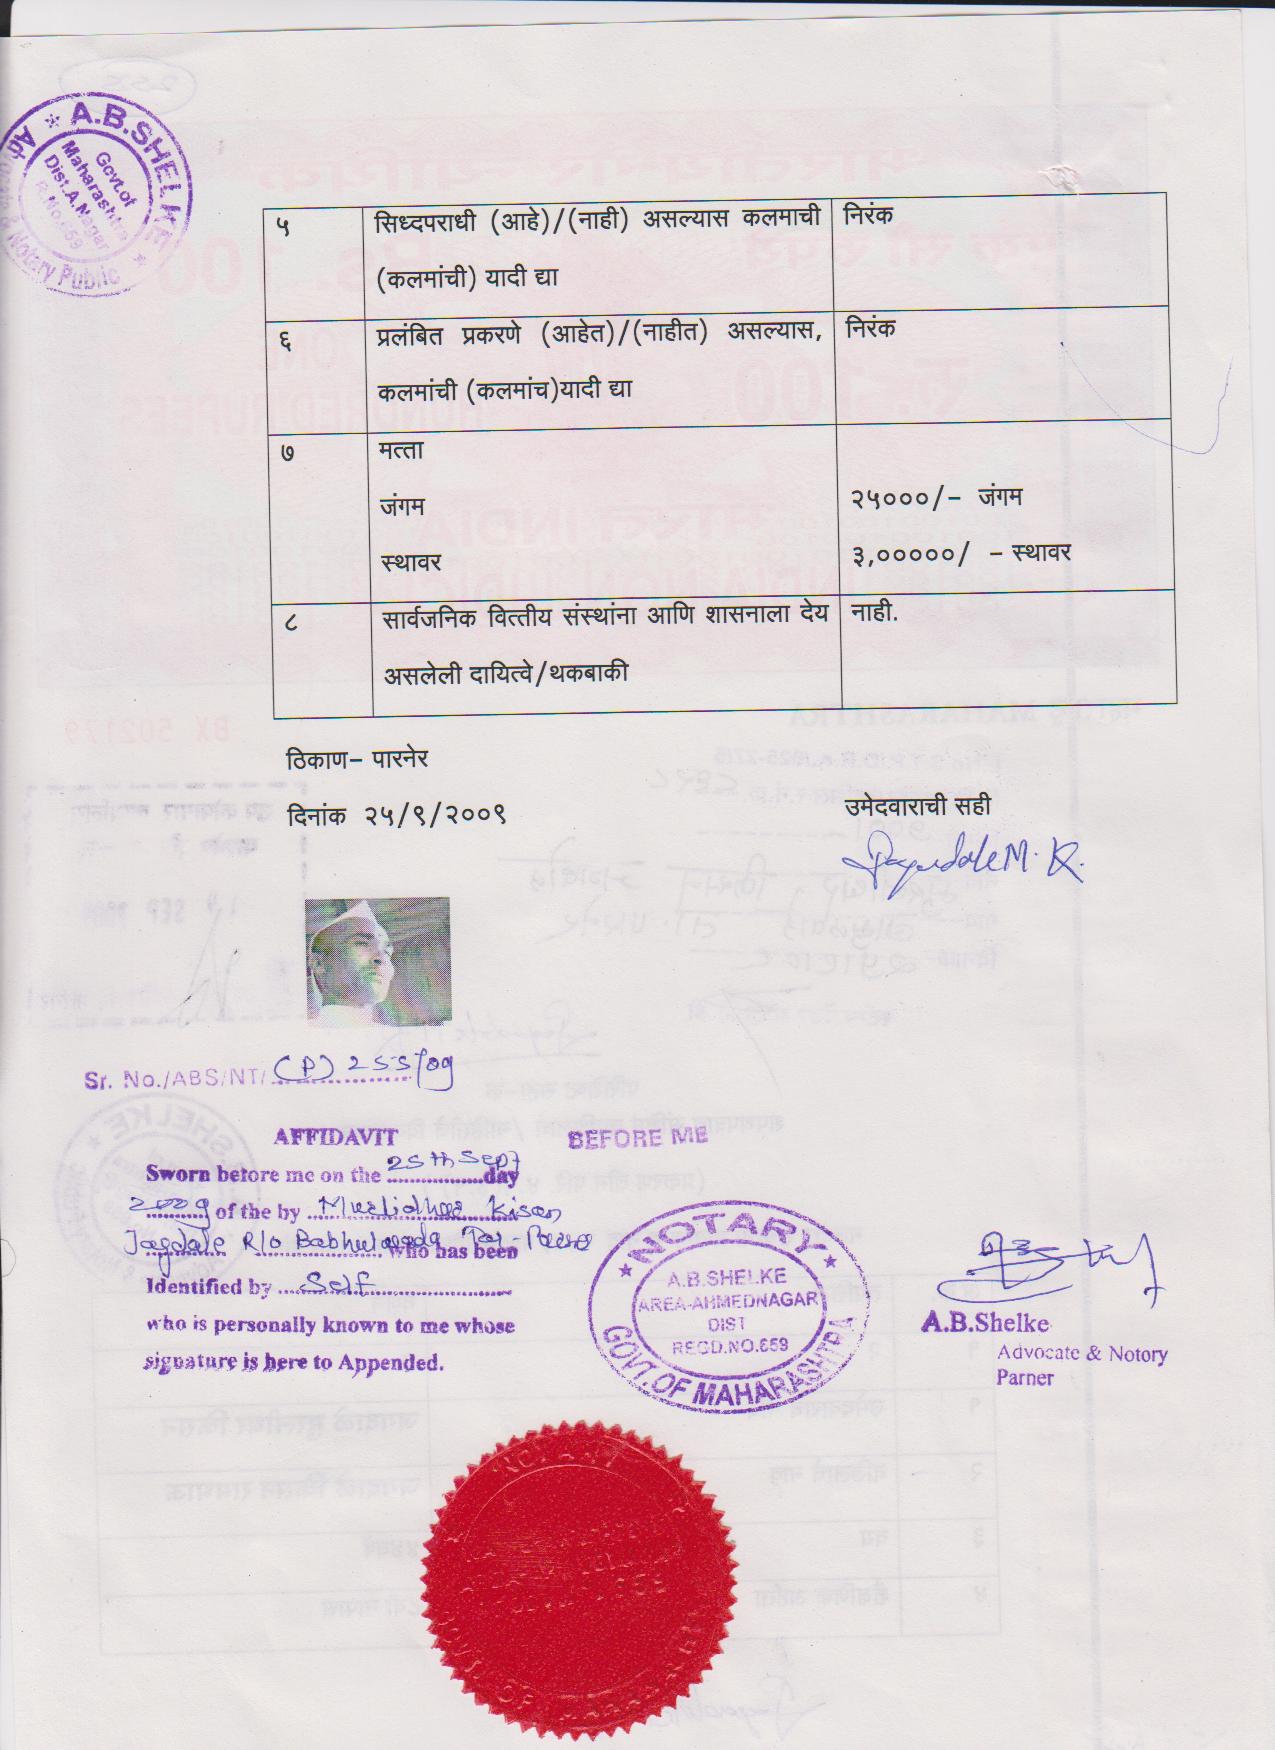 A.B.SHELKE
Advocate & Notary Public
Govt.of
Maharashtra
Dist.A.Nagar
R.No.659
५ सिध्दपराधी (आहे)/(नाही) असल्यास कलमाची निरंक
(कलमांची) यादी द्या
६ प्रलंबित प्रकरणे (आहेत)/(नाहीत) असल्यास, निरंक
कलमांची (कलमांच)यादी द्या
७ मत्ता
जंगम २५०००/- जंगम
स्थावर ३,०००००/ - स्थावर
८ सार्वजनिक वित्तीय संस्थांना आणि शासनाला देय नाही.
असलेली दायित्वे/थकबाकी
ठिकाण- पारनेर
दिनांक २५/९/२००९ उमेदवाराची सही
Jagadale M. K.
Sr. No./ABS/NT/ (P) 255/09
AFFIDAVIT BEFORE ME
Sworn before me on the 25th Sept day
2009 of the by Murlidhar Kisan
Jagdale R/o Babhulwada Tal-Parner who has been
Identified by Self
who is personally known to me whose
signature is here to Appended.
NOTARY
A.B.SHELKE
AREA-AHMEDNAGAR
DIST
REGD.NO.659
GOVT.OF MAHARASHTRA
A.B.Shelke
Advocate & Notory
Parner
NOTARY